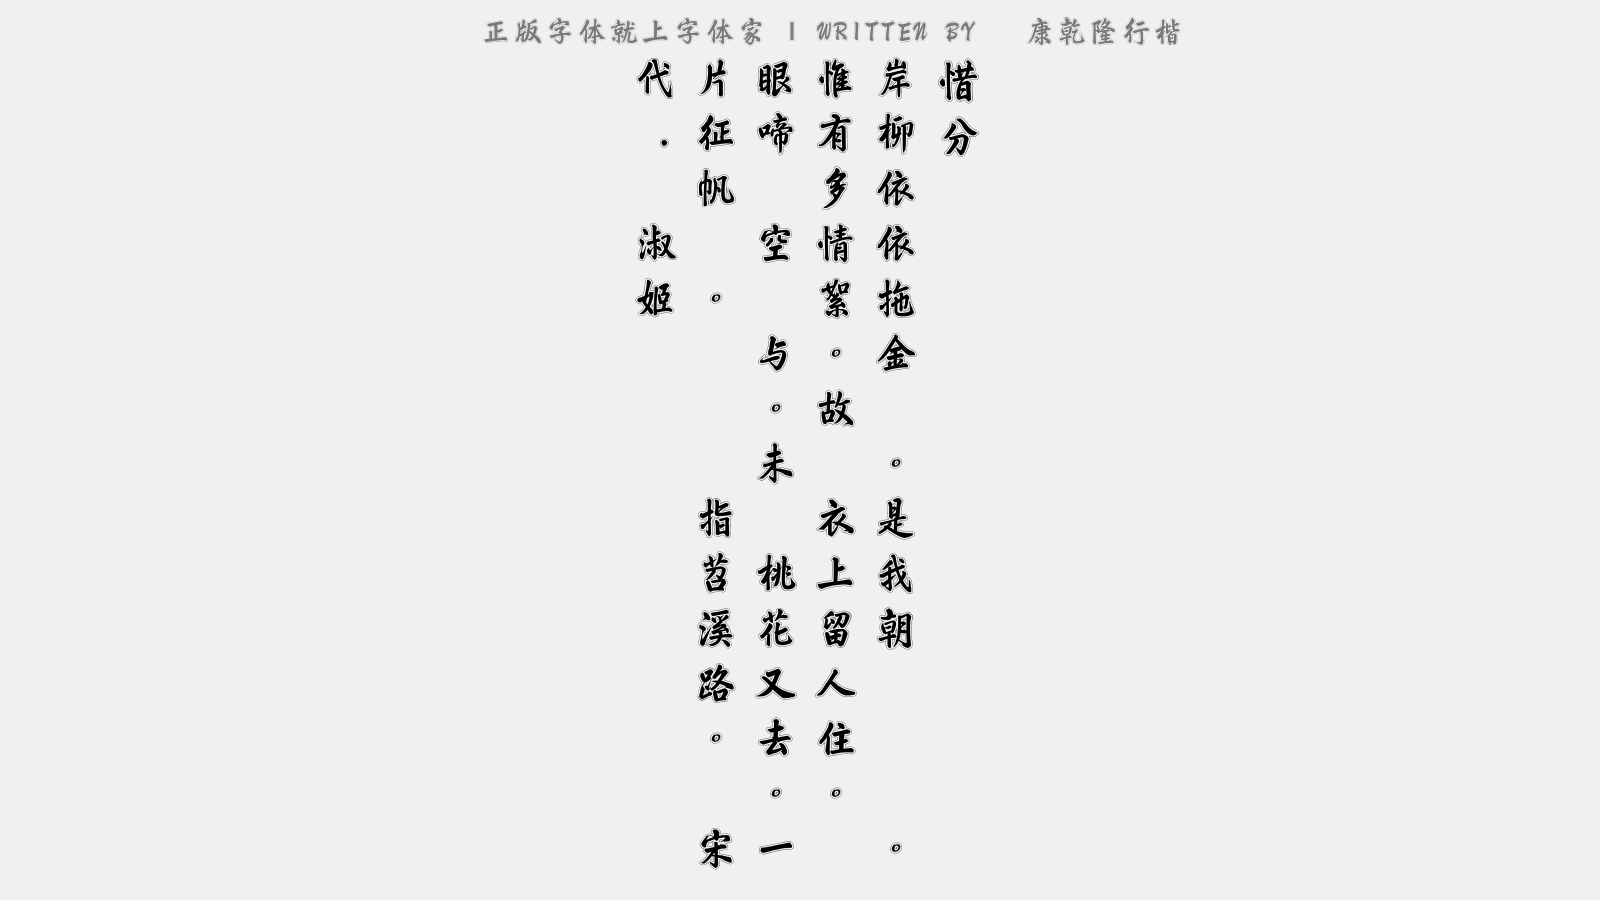 正版字体就上字体家 | WRITTEN BY 康乾隆行楷
惜分
岸柳依依拖金 。是我朝 。
惟有多情絮。故 衣上留人住。
眼啼 空 与。未 桃花又去。一
片征帆 。 指苕溪路。 宋
代. 淑姬